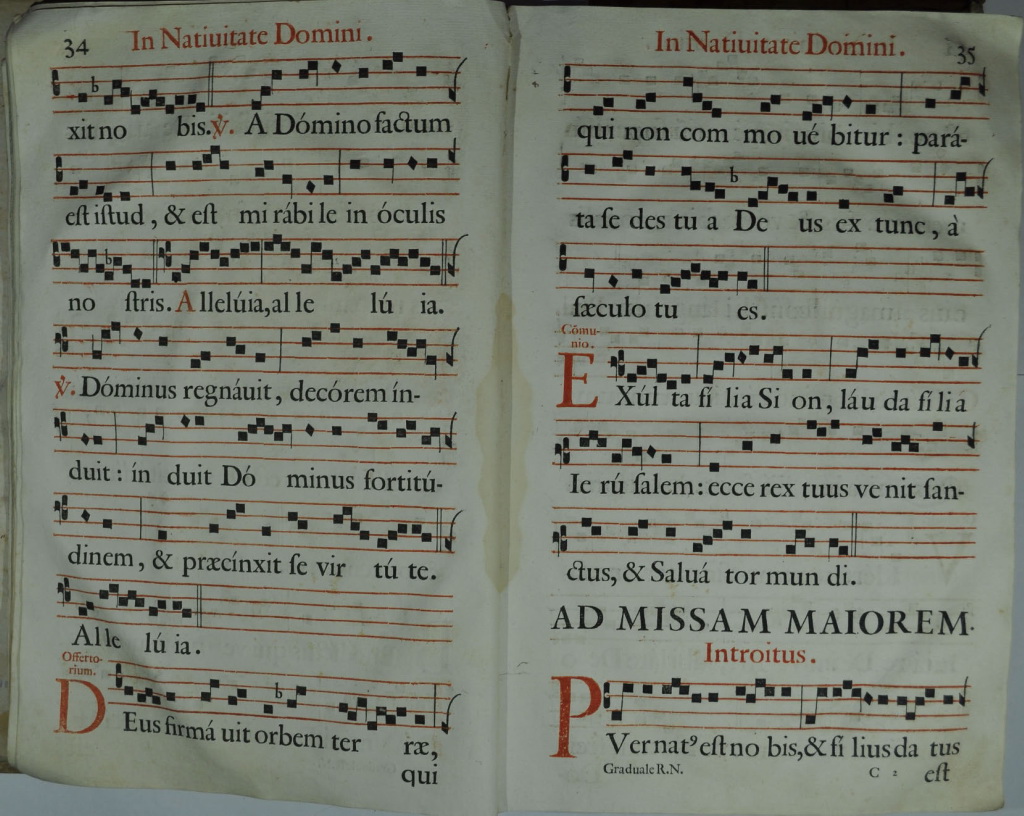 34 In Natiuitate Domini.
xit no bis. ℣. A Dómino factum
eſt iſtud, & eſt mi rábi le in óculis
no ſtris. A lleluia, al le lú ia.
℣. Dóminus regnáuit, decórem ín-
duit: ín duit Dó minus fortitú-
dinem, & præcínxit ſe vir tú te.
Al le lú ia.
Offerto-
rium.
D Eus firmá uit orbem ter ræ,
qui
In Natiuitate Domini. 35
qui non com mo ué bitur: pará-
ta ſe des tu a De us ex tunc, à
ſæculo tu es.
Cōmu-
nio.
E Xúl ta fí lia Si on, láu da fí li a
Ie rú ſalem: ecce rex tuus ve nit ſan-
ctus, & Saluá tor mun di.
AD MISSAM MAIOREM.
Introitus.
P Ver natꝰ eſt no bis, & fí lius da tus
Graduale R.N. C 2 eſt